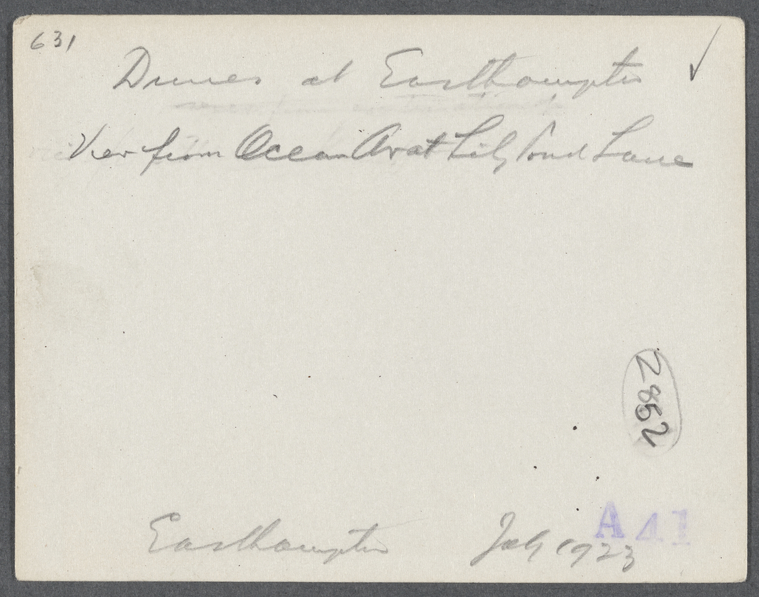 631
Dunes at Easthampton
View from Ocean Av at Lily Pond Lane
2852
A 41
Easthampton July 1923